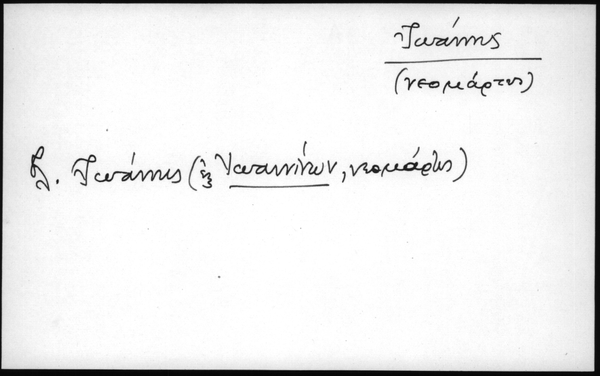 Ἰωάννης
(νεομάρτυς)
Ἰωάννης (ἐξ Ἰωαννίνων, νεομάρτυς)